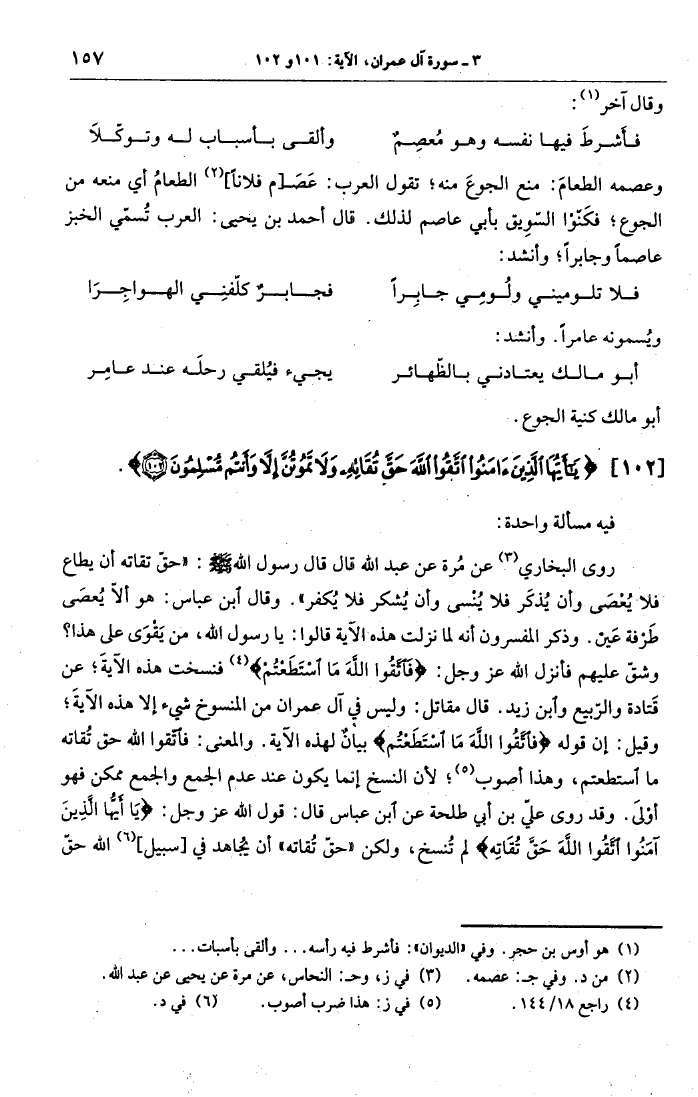 ٣ ـ سورة آل عمران، الآية: ١٠١ و ١٠٢ ١٥٧
وقال آخر(١):
فـأشـرطَ فيهـا نفسـه وهـو مُعصِـمٌ وألقـى بـأسبـاب لـه وتـوكّـلاَ
وعصمه الطعامَ: منع الجوعَ منه؛ تقول العرب: عَصَـ[م فلاناً](٢) الطعامُ أي منعه من
الجوع؛ فكَنَّوْا السَّوِيق بأبي عاصم لذلك. قال أحمد بن يحيى: العرب تُسمّي الخبز
عاصماً وجابراً؛ وأنشد:
فـلا تلـوميـني ولُـومِـي جـابِـراً فجـابـرٌ كلّفنِـي الهـواجِـرَا
ويُسمونه عامراً. وأنشد:
أبـو مـالـك يعتـادنـي بـالظّهـائـر يجيء فيُلقـي رحلَـه عنـد عـامِـر
أبو مالك كنية الجوع.
[١٠٢] ﴿ يَٰٓأَيُّهَا ٱلَّذِينَ ءَامَنُوا۟ ٱتَّقُوا۟ ٱللَّهَ حَقَّ تُقَاتِهِۦ وَلَا تَمُوتُنَّ إِلَّا وَأَنتُم مُّسْلِمُونَ ١٠٢ ﴾.
فيه مسألة واحدة:
روى البخاري(٣) عن مُرة عن عبد الله قال قال رسول الله ﷺ: «حقّ تقاته أن يطاع
فلا يُعْصَى وأن يُذكَر فلا يُنْسى وأن يُشكر فلا يُكفر». وقال ٱبن عباس: هو ألاّ يُعصَى
طَرْفة عَين. وذكر المفسرون أنه لما نزلت هذه الآية قالوا: يا رسول الله، من يَقْوَى على هذا؟
وشقّ عليهم فأنزل الله عز وجل: ﴿فَٱتَّقُوا اللَّهَ مَا ٱسْتَطَعْتُمْ﴾(٤) فنسخت هذه الآيةَ؛ عن
قَتادة والرّبيع وٱبن زيد. قال مقاتل: وليس في آل عمران من المنسوخ شيء إلا هذه الآيةَ؛
وقيل: إن قوله ﴿فٱتَّقُوا اللَّهَ مَا ٱسْتَطَعْتُم﴾ بيانٌ لهذه الآية. والمعنى: فٱتّقوا الله حق تُقاته
ما ٱستطعتم، وهذا أصوب(٥)؛ لأن النسخ إنما يكون عند عدم الجمع والجمع ممكن فهو
أوْلَى. وقد روى عليّ بن أبي طلحة عن ٱبن عباس قال: قول الله عز وجل: ﴿يَا أَيُّهَا الَّذِينَ
آمَنُوا ٱتَّقُوا اللَّهَ حَقَّ تُقَاتِهِ﴾ لم تُنسخ، ولكن «حقّ تُقاته» أن يُجاهد في [سبيل](٦) الله حقّ
(١) هو أوس بن حجر. وفي «الديوان»: فأشرط فيه رأسه... وألقى بأسبات...
(٢) من د. وفي جـ: عصمه. (٣) في ز، وحـ: النحاس، عن مرة عن يحيى عن عبد الله.
(٤) راجع ١٤٤/١٨. (٥) في ز: هذا ضرب أصوب. (٦) في د.